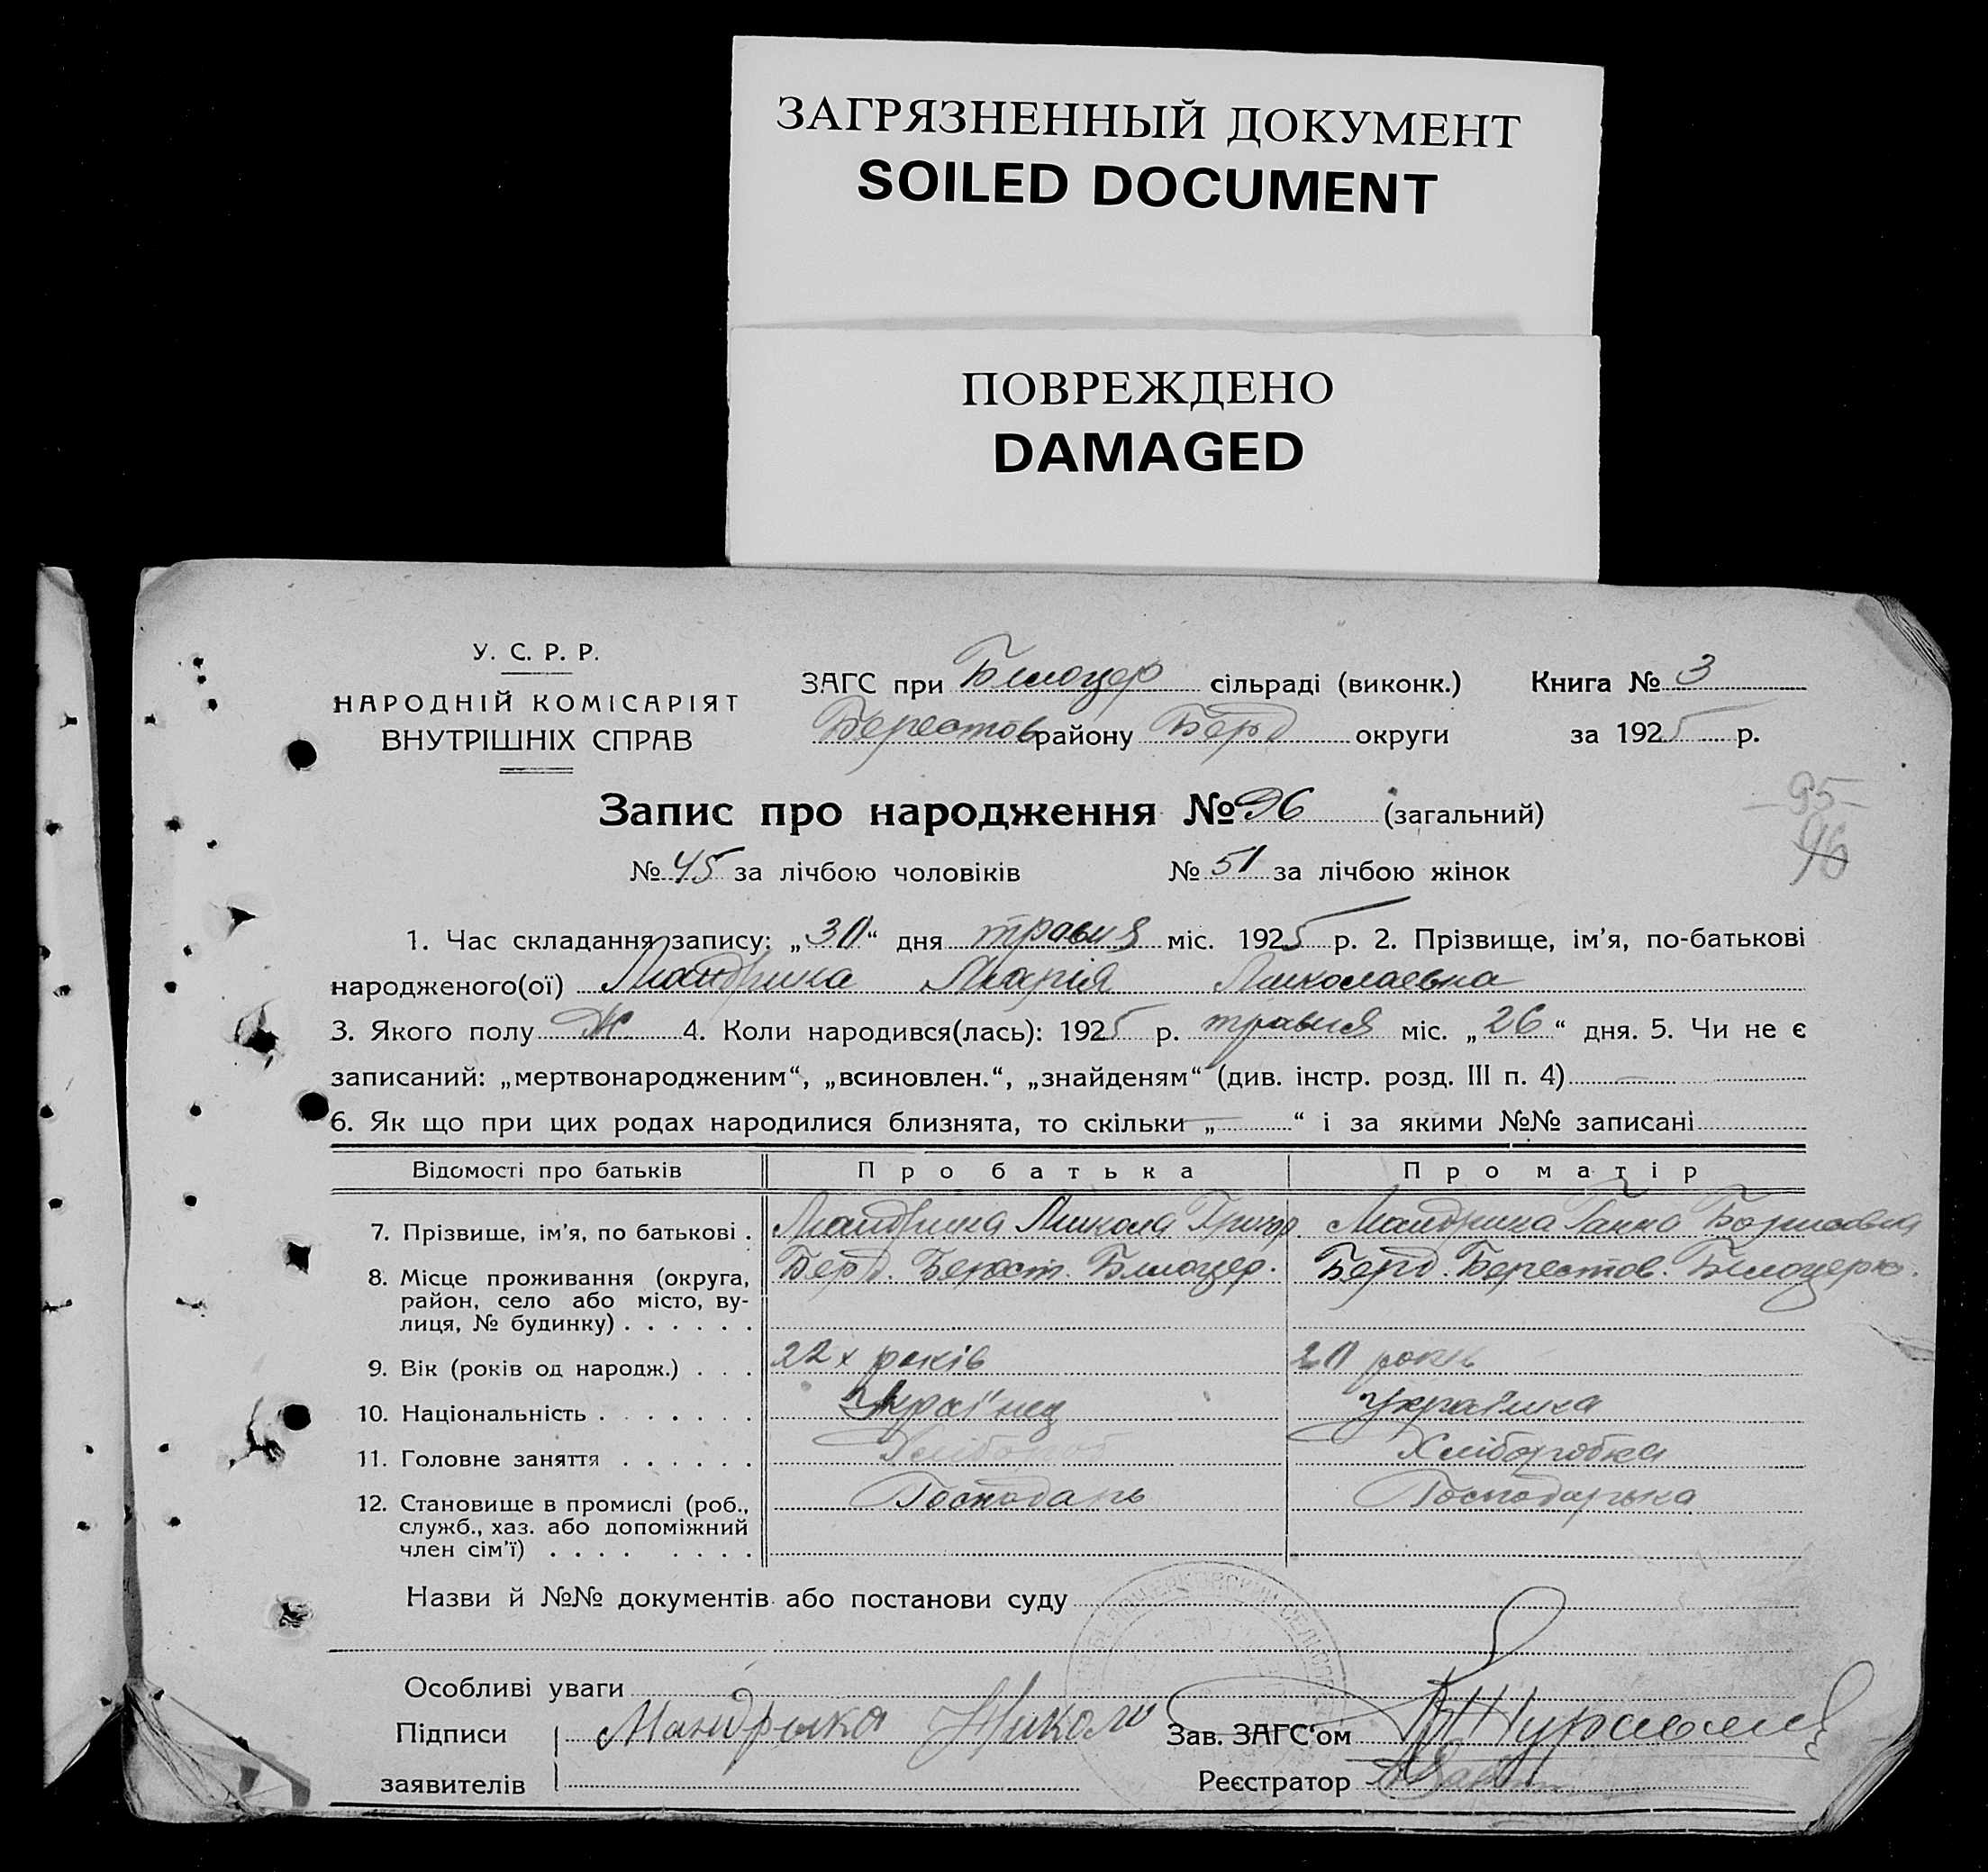 ЗАГРЯЗНЕННЫЙ ДОКУМЕНТ
SOILED DOCUMENT
ПОВРЕЖДЕНО
DAMAGED
У. С. Р. Р.
НАРОДНІЙ КОМІСАРІЯТ
ВНУТРІШНІХ СПРАВ
ЗАГС при Білоцер сільраді (виконк.) Книга № 3
Берестов району Берд округи за 1925 р.
95
96
Запис про народження № 96 (загальний)
№ 45 за лічбою чоловіків № 51 за лічбою жінок
1. Час складання запису: „30“ дня травня міс. 1925 р. 2. Прізвище, ім'я, по-батькові
народженого(ої) Мандрика Марія Миколаевна
3. Якого полу Ж. 4. Коли народився(лась): 1925 р. травня міс. „26“ дня. 5. Чи не є
записаний: „мертвонародженим“, „всиновлен.“, „знайденям“ (див. інстр. розд. III п. 4)
6. Як що при цих родах народилися близнята, то скільки „—“ і за якими №№ записані
Відомості про батьків Про батька Про матір
7. Прізвище, ім'я, по батькові . Мандрика Микола Григор. Мандрика Ганна Борисовна
8. Місце проживання (округа, Берд. Берест. Білоцер. Берд. Берестов. Білоцерк.
район, село або місто, ву-
лиця, № будинку) . . . . . .
9. Вік (років од народж.) . . . 22х років 20 років
10. Національність . . . . . . . Украінец украінка
11. Головне заняття . . . . . . Хлібороб Хліборобка
12. Становище в промислі (роб., Господарь Господарька
служб., хаз. або допоміжний
член сім'ї) . . . . . . . .
Назви й №№ документів або постанови суду
Особливі уваги
Підписи Мандрика Николо Зав. ЗАГС'ом
заявителів Реєстратор